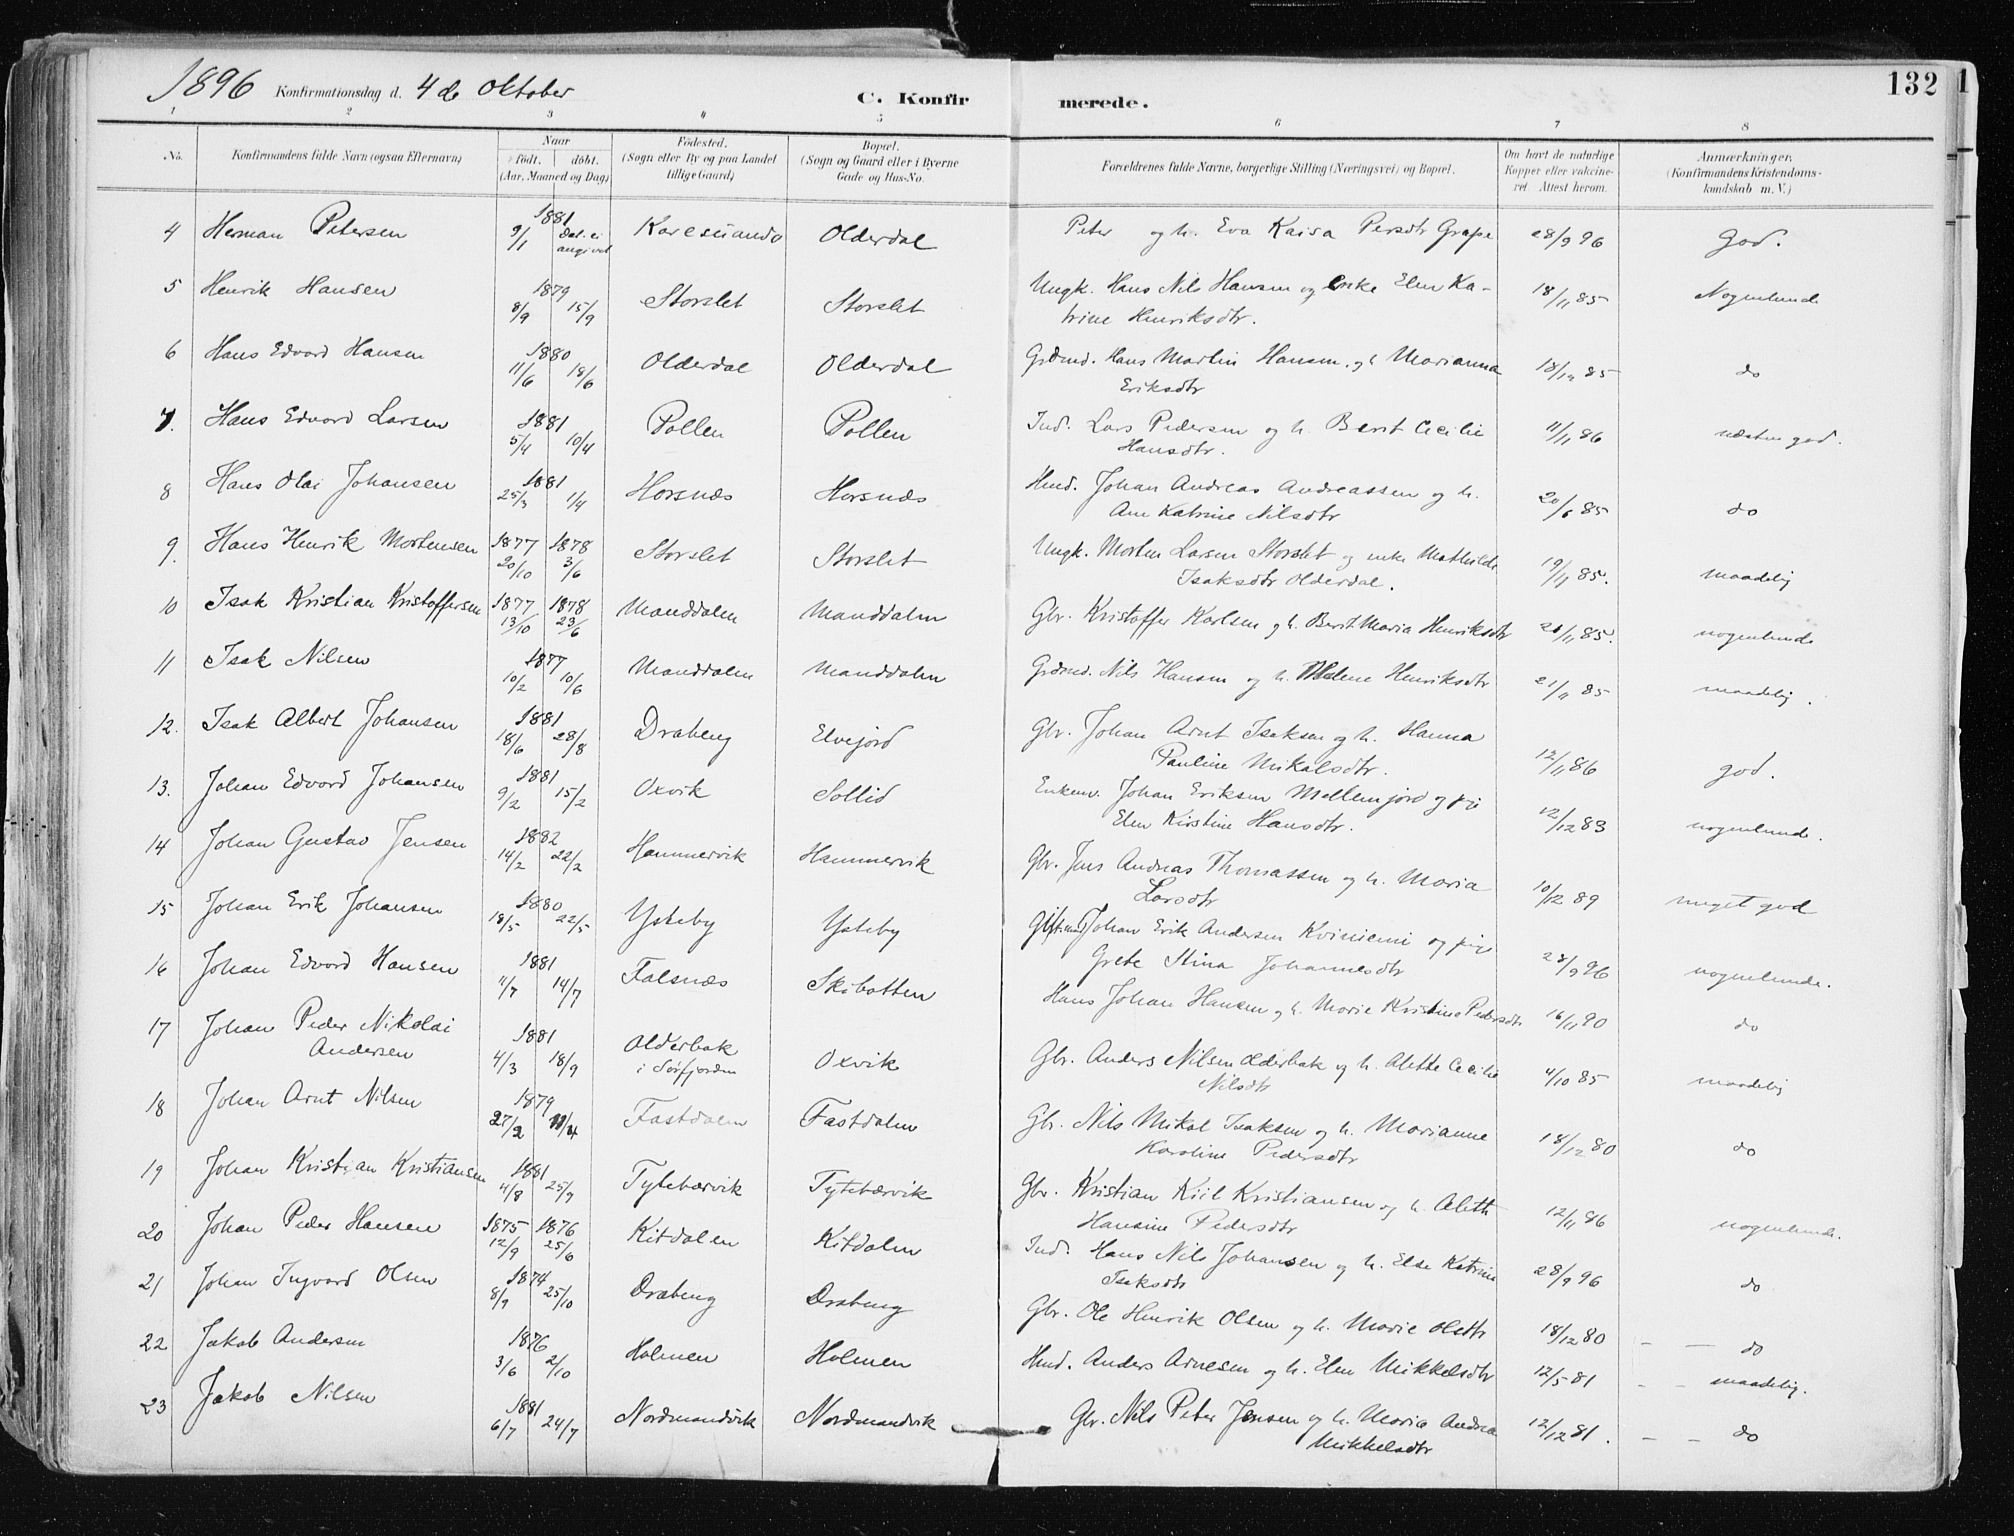 1896 Konfirmationsdag d. 4de Oktober C. Konfirmerede. 132
1 2 3 4 5 6 7 8
No. Konfirmandens fulde Navn (ogsaa Efternavn) Naar födt. döbt. (Aar, Maaned og Dag) Födested. (Sogn eller By og paa Landet tillige Gaard) Bopæl. (Sogn og Gaard eller i Byerne Gade og Hus-No. Forældrenes fulde Navne, borgerlige Stilling (Næringsvei) og Bopæl. Om havt de naturlige Kopper eller vakcineret. Attest herom. Anmærkninger. (Konfirmandens Kristendomskundskab m. V.)
4 Herman Petersen 1881 9/1 Dat. ei angivet Karesuando Olderdal Peter og h. Eva Kaisa Persdtr Grape 28/9 96 God.
5 Henrik Hansen 1879 8/9 15/9 Storslet Storslet Ungk. Hans Nils Hansen og enke Elen Ka-
trine Henriksdtr. 18/11 85 Nogenlunde
6 Hans Edvard Hansen 1880 11/6 18/6 Olderdal Olderdal Grdmd. Hans Martin Hansen. og h Marianna
Eriksdtr 18/12 85 do
7. Hans Edvard Larsen 1881 5/4 10/4 Pollen Pollen Ind. Lars Pedersen og h. Berit Cecilie
Hansdtr. 11/11 86 næsten god.
8 Hans Olai Johansen 1881 25/3 1/4 Horsnæs Horsnæs Hmd. Johan Andreas Andreassen og h.
Ane Katrine Nilsdtr 20/6 85 do
9. Hans Henrik Mortensen 1877 20/10 1878 3/6 Storslet Storslet Ungk. Morten Larsen Storslet og enke Mathilde
Isaksdtr Olderdal. 19/11 85. maadelig
10 Isak Kristian Kristoffersen 1877 13/10 1878 23/6 Manddalen Manddalen Gbr. Kristoffer Karlsen og h. Berit Maria Henriksdtr 20/11 85. nogenlunde
11 Isak Nilsen 1877 10/2 10/6 Manddalen Manddalen Grdmd. Nils Hansen og h. Malene Henriksdtr 21/11 85 maadelig.
12. Isak Albert Johansen 1881 18/6 28/8 Drabeng Elvejord Gbr. Johan Arnt Isaksen og h. Hanna
Pauline Mikalsdtr. 12/11 86 god.
13. Johan Edvard Johansen 1881 9/2 15/2 Oxvik Sollid Enkem. Johan Eriksen Mellemjord og pie
Elen Kirstine Hansdtr. 12/12 83 nogenlunde.
14 Johan Gustav Jensen 1882 14/2 22/2 Hammervik Hammervik Gbr. Jens Andreas Thomassen og h. Maria
Larsdtr 10/12 89 meget god
15 Johan Erik Johansen 1880 18/5 22/5 Ysteby Ysteby Giftmd Johan Erik Andersen Kviniemi og pige
Grete Stina Johannesdtr 28/9 96 nogenlunde.
16 Johan Edvard Hansen 1881 11/7 14/7 Falsnæs Skibotten Hans Johan Hansen og h. Marie Kristine Pedersdtr 16/11 90 do
17 Johan Peder Nikolai
Andersen 1881 4/3 18/9 Olderbak i Sörfjorden Oxvik Gbr. Anders Nilsen Olderbak og h. Alette Cecilie
Nilsdtr 4/10 85 maadelig
18 Johan Arnt Nilsen 1879 27/2 11/4 Fastdalen Fastdalen Gbr. Nils Mikal Isaksen og h. Marianne
Karoline Pedersdtr 18/12 80 do
19 Johan Kristian Kristiansen 1881 4/8 25/9 Tytebærvik Tytebærvik Gbr. Kristian Kiil Kristiansen og h. Aleth
Hansine Pedersdtr 12/11 86 nogenlunde.
20 Johan Peder Hansen 1875 12/9 1876 25/6 Kitdalen Kitdalen Ind. Hans Nils Johansen og h. Else Katrine
Isaksdtr 28/9 96 do
21 Johan Ingvard Olsen 1874 8/9 25/10 Drabeng Drabeng Gbr. Ole Henrik Olsen og h. Marie Olsdtr 18/12 80 — — do
22 Jakob Andersen 1876 3/6 2/10 Holmen Holmen Hmd. Anders Arnesen og h. Elen Mikkelsdtr 12/5 81 - - maadelig.
23 Jakob Nilsen 1881 6/7 24/7 Nordmandvik Nordmandvik Gbr. Nils Peter Jensen og h. Maria Andrea
Mikkelsdtr 12/12 81. — — do